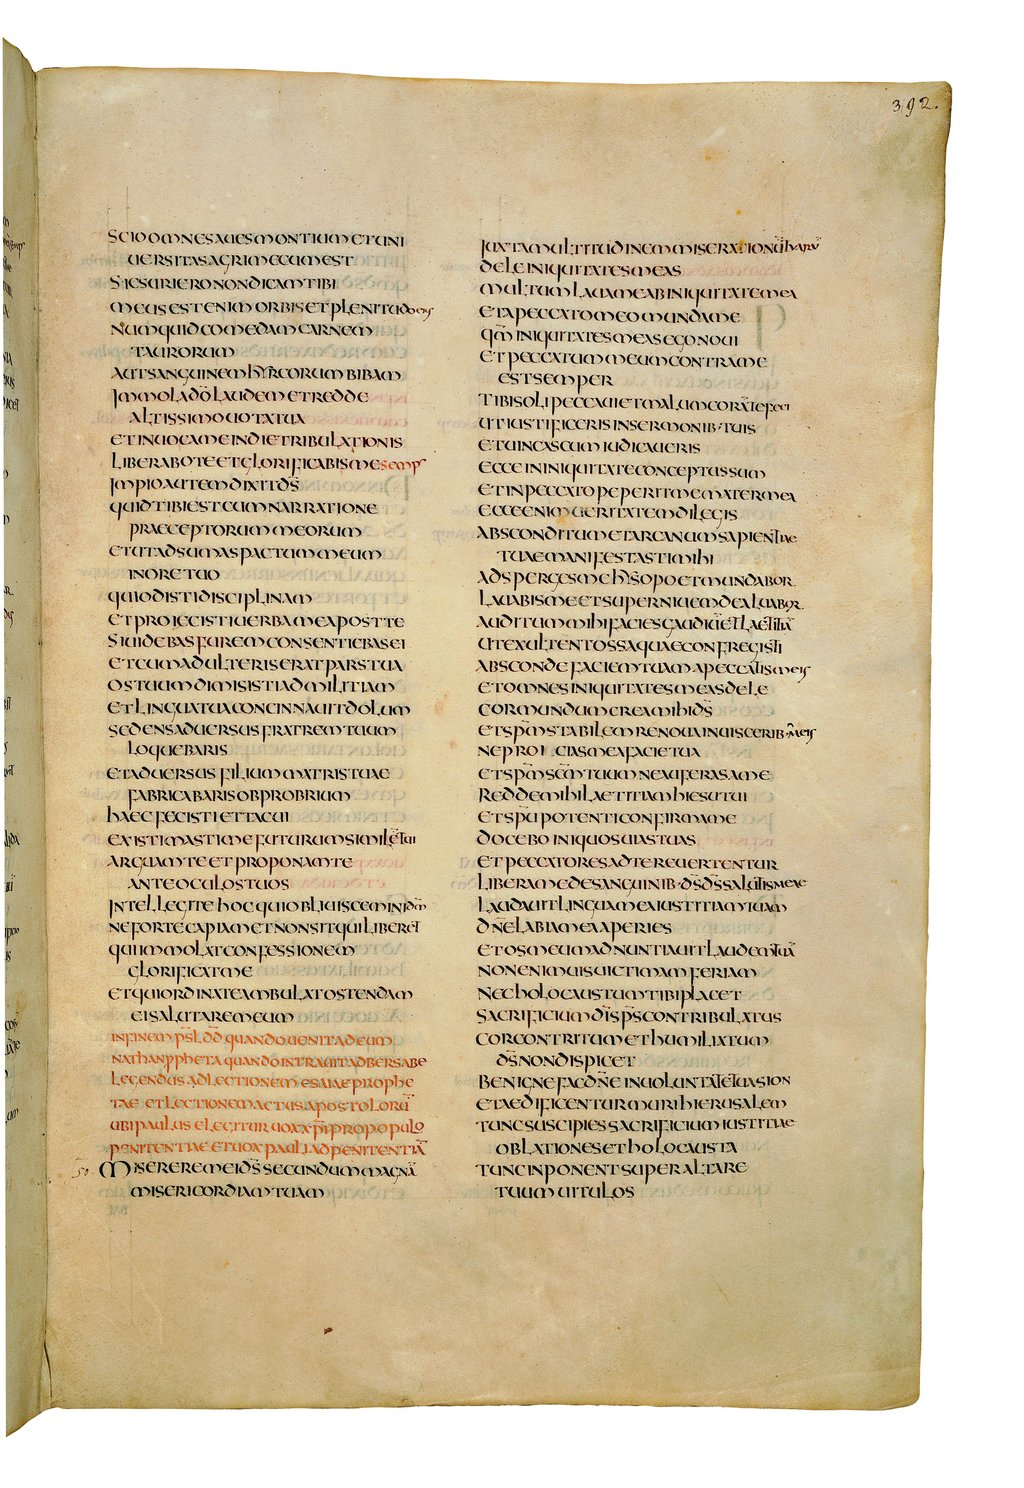 392.
SCIO OMNES AUES MONTIUM ET UNI
UERSITAS AGRI MECUM EST
SI ESURIERO NON DICAM TIBI
MEUS EST ENIM ORBIS ET PLENITUDO EIUS
NUMQUID COMEDAM CARNEM
TAURORUM
AUT SANGUINEM HYRCORUM BIBAM
IMMOLA DŌ LAUDEM ET REDDE
ALTISSIMO UOTA TUA
ET INUOCA ME IN DIE TRIBULATIONIS
LIBERABO TE ET GLORIFICABIS ME
IMPIO AUTEM DIXIT DS̄
QUID TIBI EST CUM NARRATIONE
PRAECEPTORUM MEORUM
ET UT ADSUMAS PACTUM MEUM
IN ORE TUO
QUI ODISTI DISCIPLINAM
ET PROIECISTI UERBA MEA POST TE
SI UIDEBAS FUREM CONSENTIEBAS EI
ET CUM ADULTERIS ERAT PARS TUA
OS TUUM DIMISISTI AD MILITIAM
ET LINGUA TUA CONCINNAUIT DOLUM
SEDENS ADUERSUS FRATREM TUUM
LOQUEBARIS
ET ADUERSUS FILIUM MATRIS TUAE
FABRICABARIS OBPROBRIUM
HAEC FECISTI ET TACUI
EXISTIMASTI ME FUTURUM SIMILĒ TUI
ARGUAM TE ET PROPONAM TE
ANTE OCULOS TUOS
INTELLEGITE HOC QUI OBLIUISCEMINI DM̄
NE FORTE CAPIAM ET NON SIT QUI LIBERET
QUI IMMOLAT CONFESSIONEM
GLORIFICAT ME
ET QUI ORDINATE AMBULAT OSTENDAM
EI SALUTARE MEUM
IN FINEM PSL̄ DD̄ QUANDO UENIT AD EUM
NATHAN PPHETA QUANDO INTRAUIT AD BERSABE
LEGENDUS AD LECTIONEM ESAIAE PROPHE
TAE ET LECTIONEM ACTUS APOSTOLORŪ
UBI PAULUS ELEGITUR UOX XPĪ PRO POPULO
PENITENTIAE ET UOX PAULI AD PENITENTIĀ
50. MISERERE MEI DS̄ SECUNDUM MAGNĀ
MISERICORDIAM TUAM
IUXTA MULTITUDINEM MISERATIONŪ TUARŪ
DELE INIQUITATES MEAS
MULTUM LAUA ME AB INIQUITATE MEA
ET A PECCATO MEO MUNDA ME
QM̄ INIQUITATES MEAS EGO NOUI
ET PECCATUM MEUM CONTRA ME
EST SEMPER
TIBI SOLI PECCAUI ET MALUM CORĀ TE FECI
UT IUSTIFICERIS IN SERMONIB· TUIS
ET UINCAS CUM IUDICAUERIS
ECCE IN INIQUITATE CONCEPTUS SUM
ET IN PECCATO PEPERIT ME MATER MEA
ECCE ENIM UERITATEM DILEGIS
ABSCONDITUM ET ARCANUM SAPIENTIAE
TUAE MANIFESTASTI MIHI
ADSPERGES ME HYSOPO ET MUNDABOR
LAUABIS ME ET SUPER NIUEM DEALUABOR
AUDITUM MIHI FACIES GAUDIŪ ET LAETITIĀ
UT EXULTENT OSSA QUAE CONFREGISTI
ABSCONDE FACIEM TUAM A PECCATIS MEIS
ET OMNES INIQUITATES MEAS DELE
COR MUNDUM CREA MIHI DS̄
ET SPM̄ STABILEM RENOUA IN UISCERIB· MEIS
NE PROI CIAS ME A FACIE TUA
ET SPM̄ SCM̄ TUUM NE AUFERAS A ME
REDDE MIHI LAETITIAM HIESU TUI
ET SPŪ POTENTI CONFIRMA ME
DOCEBO INIQUOS UIAS TUAS
ET PECCATORES AD TE REUERTENTUR
LIBERA ME DE SANGUINIB· DS̄ DS̄ SALUTIS MEAE
LAUDAUIT LINGUA MEA IUSTITIAM TUAM
DNE LABIA MEA APERIES
ET OS MEUM ADNUNTIAUIT LAUDEM TUĀ
NON ENIM UIS UICTIMAM FERIAM
NEC HOLOCAUSTUM TIBI PLACET
SACRIFICIUM DĪ SPS̄ CONTRIBULATUS
COR CONTRITUM ET HUMILIATUM
DS̄ NON DISPICET
BENIGNE FAC DNE IN UOLUNTATE TUA SION
ET AEDIFICENTUR MURI HIERUSALEM
TUNC SUSCIPIES SACRIFICIUM IUSTITIAE
OBLATIONES ET HOLOCAUSTA
TUNC INPONENT SUPER ALTARE
TUUM UITULOS